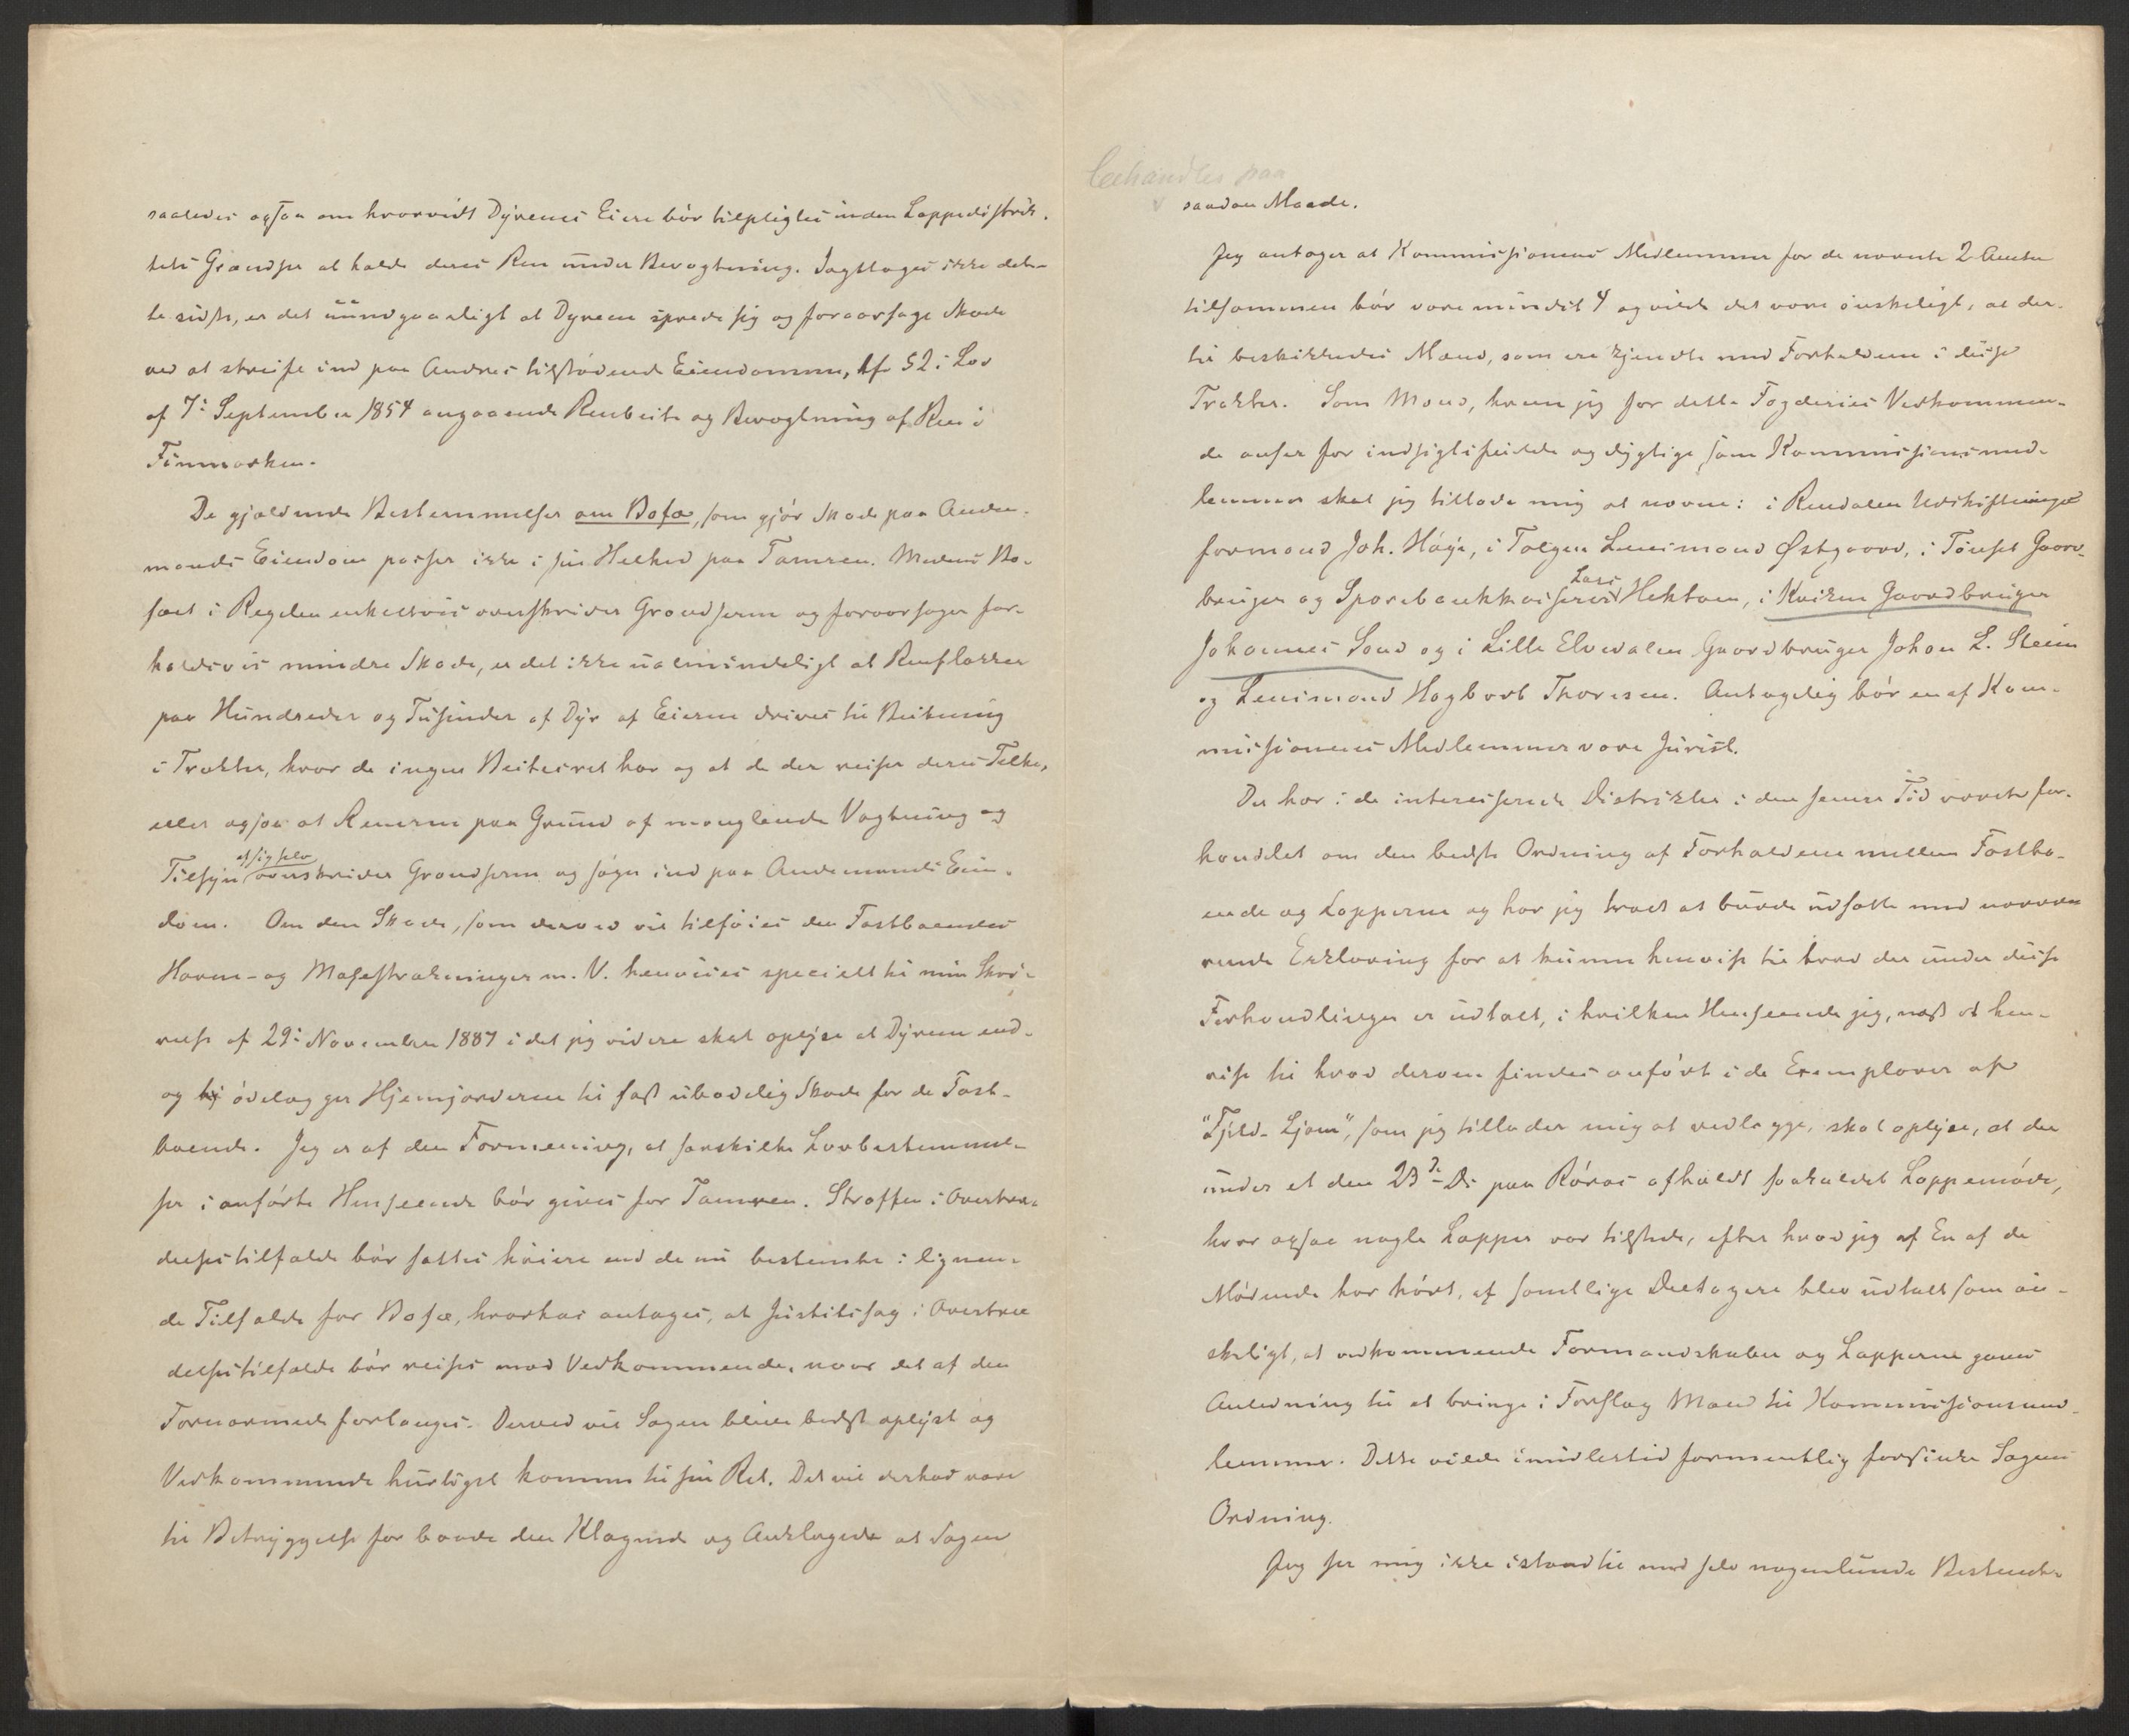 saaledes ogsaa om hvorvidt Dyrenes Eiere bør tilpligtes inden Lappedistrik-
tets Grændser at holde deres Ren under Bevogtning. Iagttages ikke det-
te sidste, er det uundgaaeligt at Dyrene sprede sig og foraarsage Skade
ved at streife ind paa Andres tilstødende Eiendomme, cfr § 2 i Lov
af 7de September 1854 angaaende Renbeite og Bevogtning af Ren i
Finmarken.
De gjældende Bestemmelser om Bofæ, som gjør Skade paa Anden-
mands Eiendom passer ikke i sin Helhed paa Tamren. Medens Bo-
fæet i Regelen enkeltvis overskrider Grændserne og foraarsager for-
holdsvis mindre Skade, er det ikke ualmindeligt at Renflokker
paa Hundreder og Tusinder af Dyr af Eierne drives til Beitning
i Trakter, hvor de ingen Beitesret har og at de der reiser deres Telte,
eller ogsaa at Renerne paa Grund af manglende Vogtning og
Tilsyn af sig selv overskrider Grændserne og søger ind paa Andenmands Eien-
dom. Om den Skade, som derved vil tilføies den Fastboendes
Havne- og Mosestrækninger m. V. henvises specielt til min Skri-
velse af 29de November 1887 idet jeg videre skal oplyse at Dyrene end-
og ødelægger Hjemjorderne til fast ubodelig Skade for de Fast-
boende. Jeg er af den Formening, at særskilte Lovbestemmel-
ser i anførte Henseende bør gives for Tamren. Straffen i Overtræ-
delsestilfælde bør sættes høiere end de nu bestemte i lignen-
de Tilfælde for Bofæ, hvorhos antages, at Justitssag i Overtræ
delsestilfælde bør reises mod Vedkommende, naar det af den
Fornærmede forlanges. Derved vil Sagen blive bedst oplyst og
Vedkommende hurtigst komme til sin Ret. Det vil derhos være
til Betryggelse for baade den Klagende og Anklagede at Sagen
behandles paa
saadan Maade.
Jeg antager at Kommissionens Medlemmer for de nævnte 2 Amter
tilsammen bør være mindst 4 og vilde det være ønskeligt, at der-
til beskikkedes Mænd, som ere kjendte med Forholdene i disse
Trakter. Som Mænd, hvem jeg for dette Fogderies Vedkommen-
de anser for indsigtsfulde og dygtige som Kommissionsmed-
lemmer skal jeg tillade mig at nævne: i Rendalen Udskiftnings
formand Joh. Høye, i Tolgen Lensmand Østgaard, i Tønset Gaard-
bruger og Sparebankkasserer Lars Hektoen, i Kvikne Gaardbruger
Johannes Sand og i Lille Elvedalen Gaardbruger Johan L. Steien
og Lensmand Hagbart Thoresen. Antagelig bør en af Kom-
missionens Medlemmer være Jurist.
Der har i de interesserede Distrikter i den senere Tid været for-
handlet om den bedste Ordning af Forholdene mellem Fastbo-
ende og Lapperne og har jeg troet at burde udsætte med nærvæ-
rende Erklæring for at kunne henvise til hvad der under disse
Forhandlinger er udtalt, i hvilken Henseende jeg, næst at hen-
vise til hvad derom findes anført i de Exemplarer af
"Fjeld-Ljom", som jeg tillader mig at vedlægge, skal oplyse, at der
under et den 23de Ds. paa Røros afholdt saakaldet Lappemøde,
hvor ogsaa nogle Lapper var tilstede, efter hvad jeg af En af de
Mødende har hørt, af samtlige Deltagere blev udtalt som øn-
skeligt, at vedkommende Formandskaber og Lapperne gaves
Anledning til at bringe i Forslag Mænd til Kommissionsmed-
lemmer. Dette vilde imidlertid formentlig forsinke Sagens
Ordning.
Jeg ser mig ikke istand til med selv nogenlunde Bestemt-